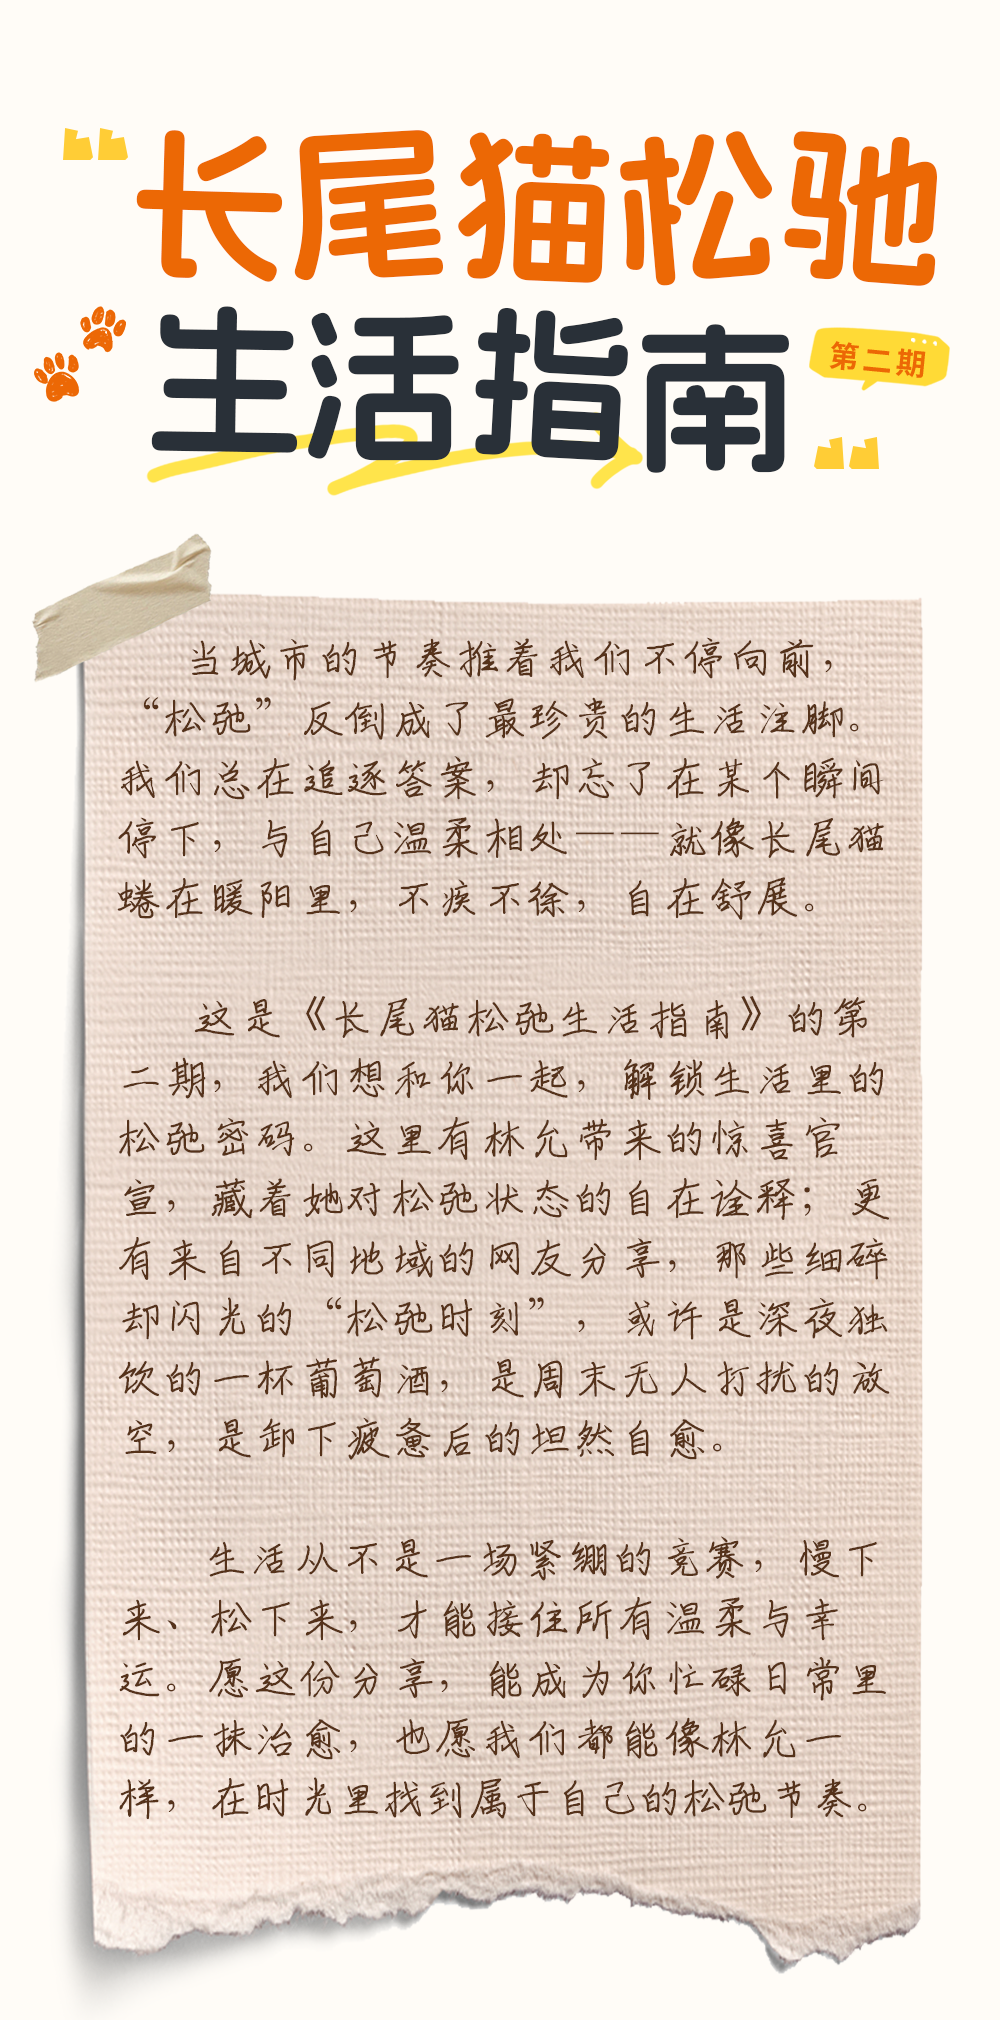 “长尾猫松驰
生活指南
第二期
”
当城市的节奏推着我们不停向前，
“松弛”反倒成了最珍贵的生活注脚。
我们总在追逐答案，却忘了在某个瞬间
停下，与自己温柔相处——就像长尾猫
蜷在暖阳里，不疾不徐，自在舒展。
这是《长尾猫松弛生活指南》的第
二期，我们想和你一起，解锁生活里的
松弛密码。这里有林允带来的惊喜官
宣，藏着她对松弛状态的自在诠释；更
有来自不同地域的网友分享，那些细碎
却闪光的“松弛时刻”，或许是深夜独
饮的一杯葡萄酒，是周末无人打扰的放
空，是卸下疲惫后的坦然自愈。
生活从不是一场紧绷的竞赛，慢下
来、松下来，才能接住所有温柔与幸
运。愿这份分享，能成为你忙碌日常里
的一抹治愈，也愿我们都能像林允一
样，在时光里找到属于自己的松弛节奏。